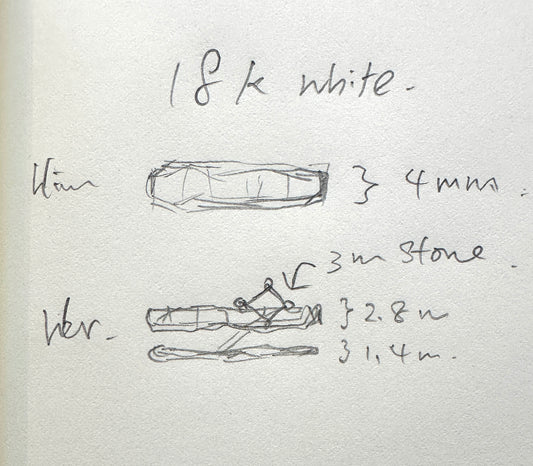 18k white.
Him } 4mm.
3m stone.
Her. } 2.8m
} 1.4m.